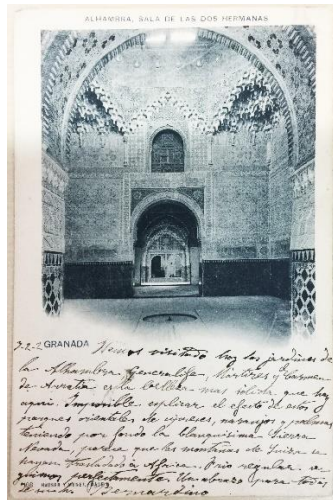 ALHAMBRA, SALA DE LAS DOS HERMANAS
GRANADA
Hemos visitado hoy los jardines de
la Alhambra, Generalife, Mártires y Carmen
de Arratia es la belleza mas que hay
aqui. Imposible explicar el efecto de estos
parques orientales de cipreses, naranjos y palmeras
teniendo por fondo la blanquisima Sierra
Nevada, parece que las montañas de Suiza se
hayan trasladado a Africa. Frio regular
perfectamente. Un abrazo para todos
Bernardino
HAUSER Y MENET.-MADRID